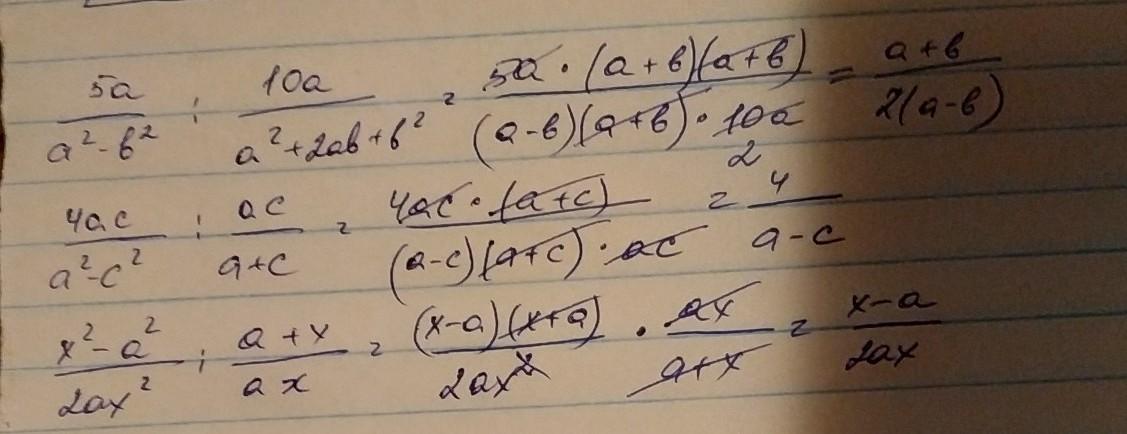 5a/(a²-b²) : 10a/(a²+2ab+b²) = 5a·(a+b)(a+b)/((a-b)(a+b)·10a) 2 = (a+b)/(2(a-b))
4ac/(a²-c²) : ac/(a+c) = 4ac·(a+c)/((a-c)(a+c)·ac) = 4/(a-c)
(x²-a²)/(2ax²) : (a+x)/(ax) = (x-a)(x+a)/(2ax²) · ax/(a+x) = (x-a)/(2ax)